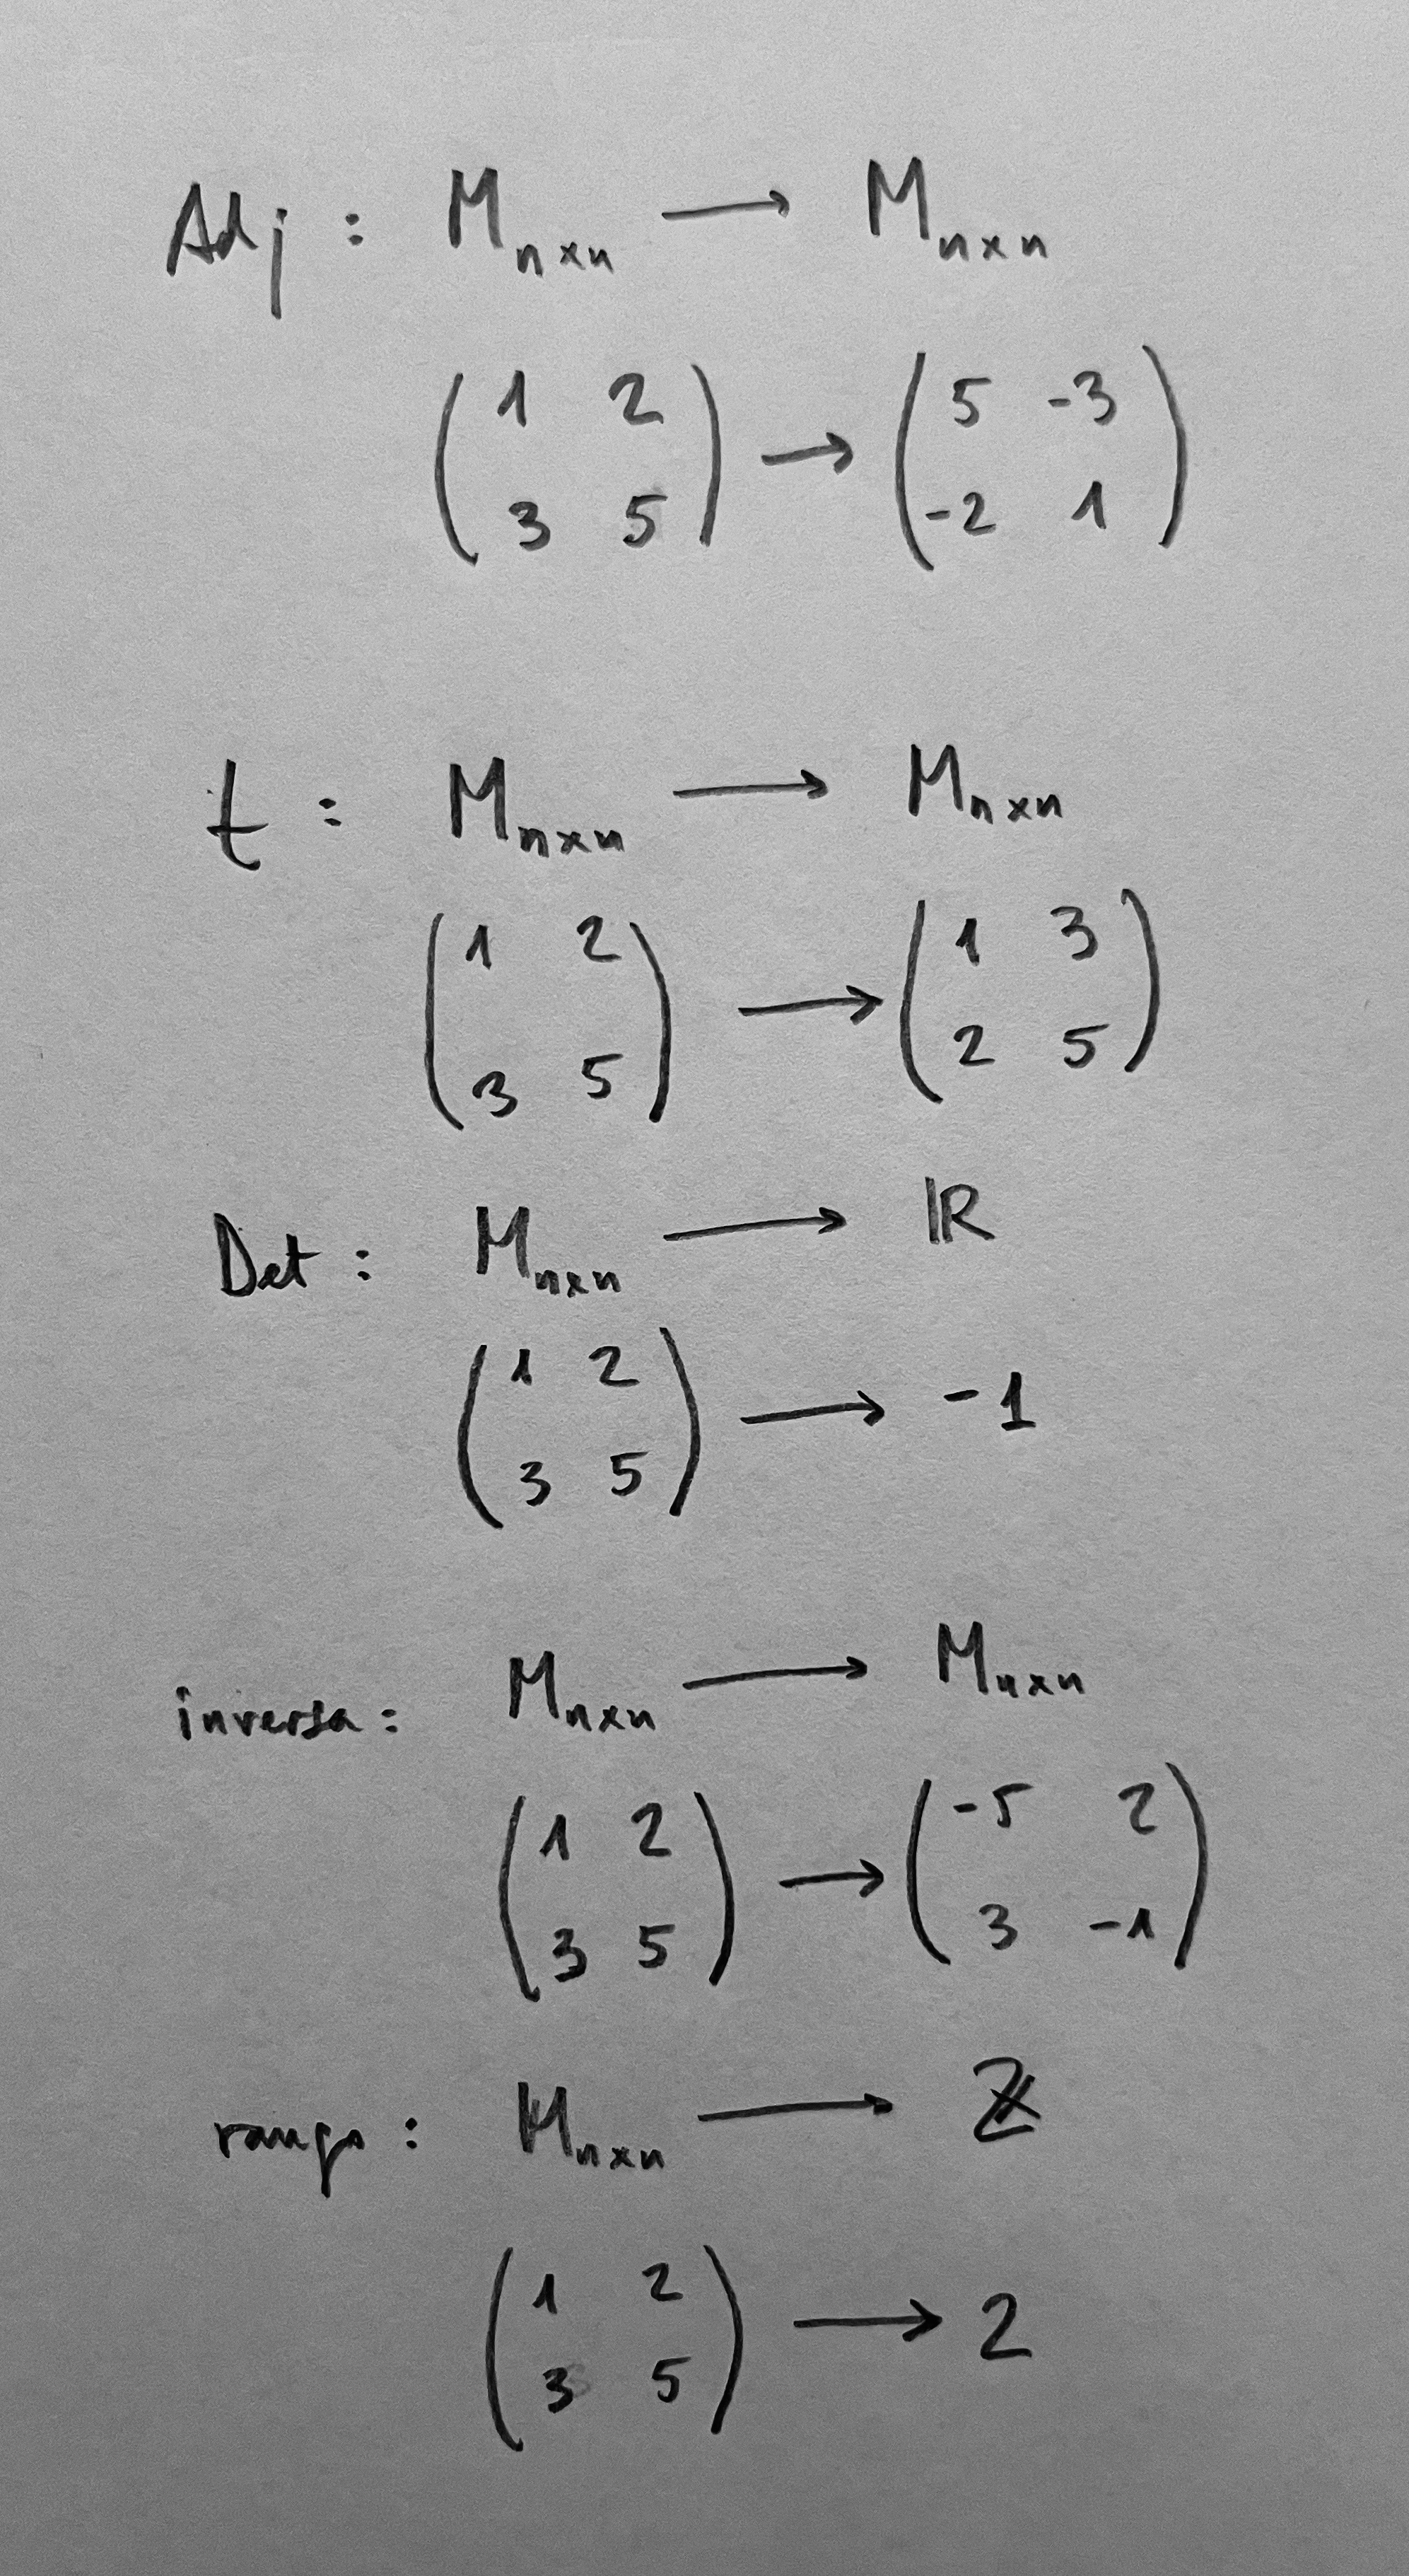 Adj : M n×n → M n×n
( 1 2 → ( 5 -3
3 5 ) -2 1 )
t : M n×n → M n×n
( 1 2 → ( 1 3
3 5 ) 2 5 )
Det : M n×n → ℝ
( 1 2 → -1
3 5 )
inversa : M n×n → M n×n
( 1 2 → ( -5 2
3 5 ) 3 -1 )
rango : M n×n → ℤ
( 1 2 → 2
3 5 )